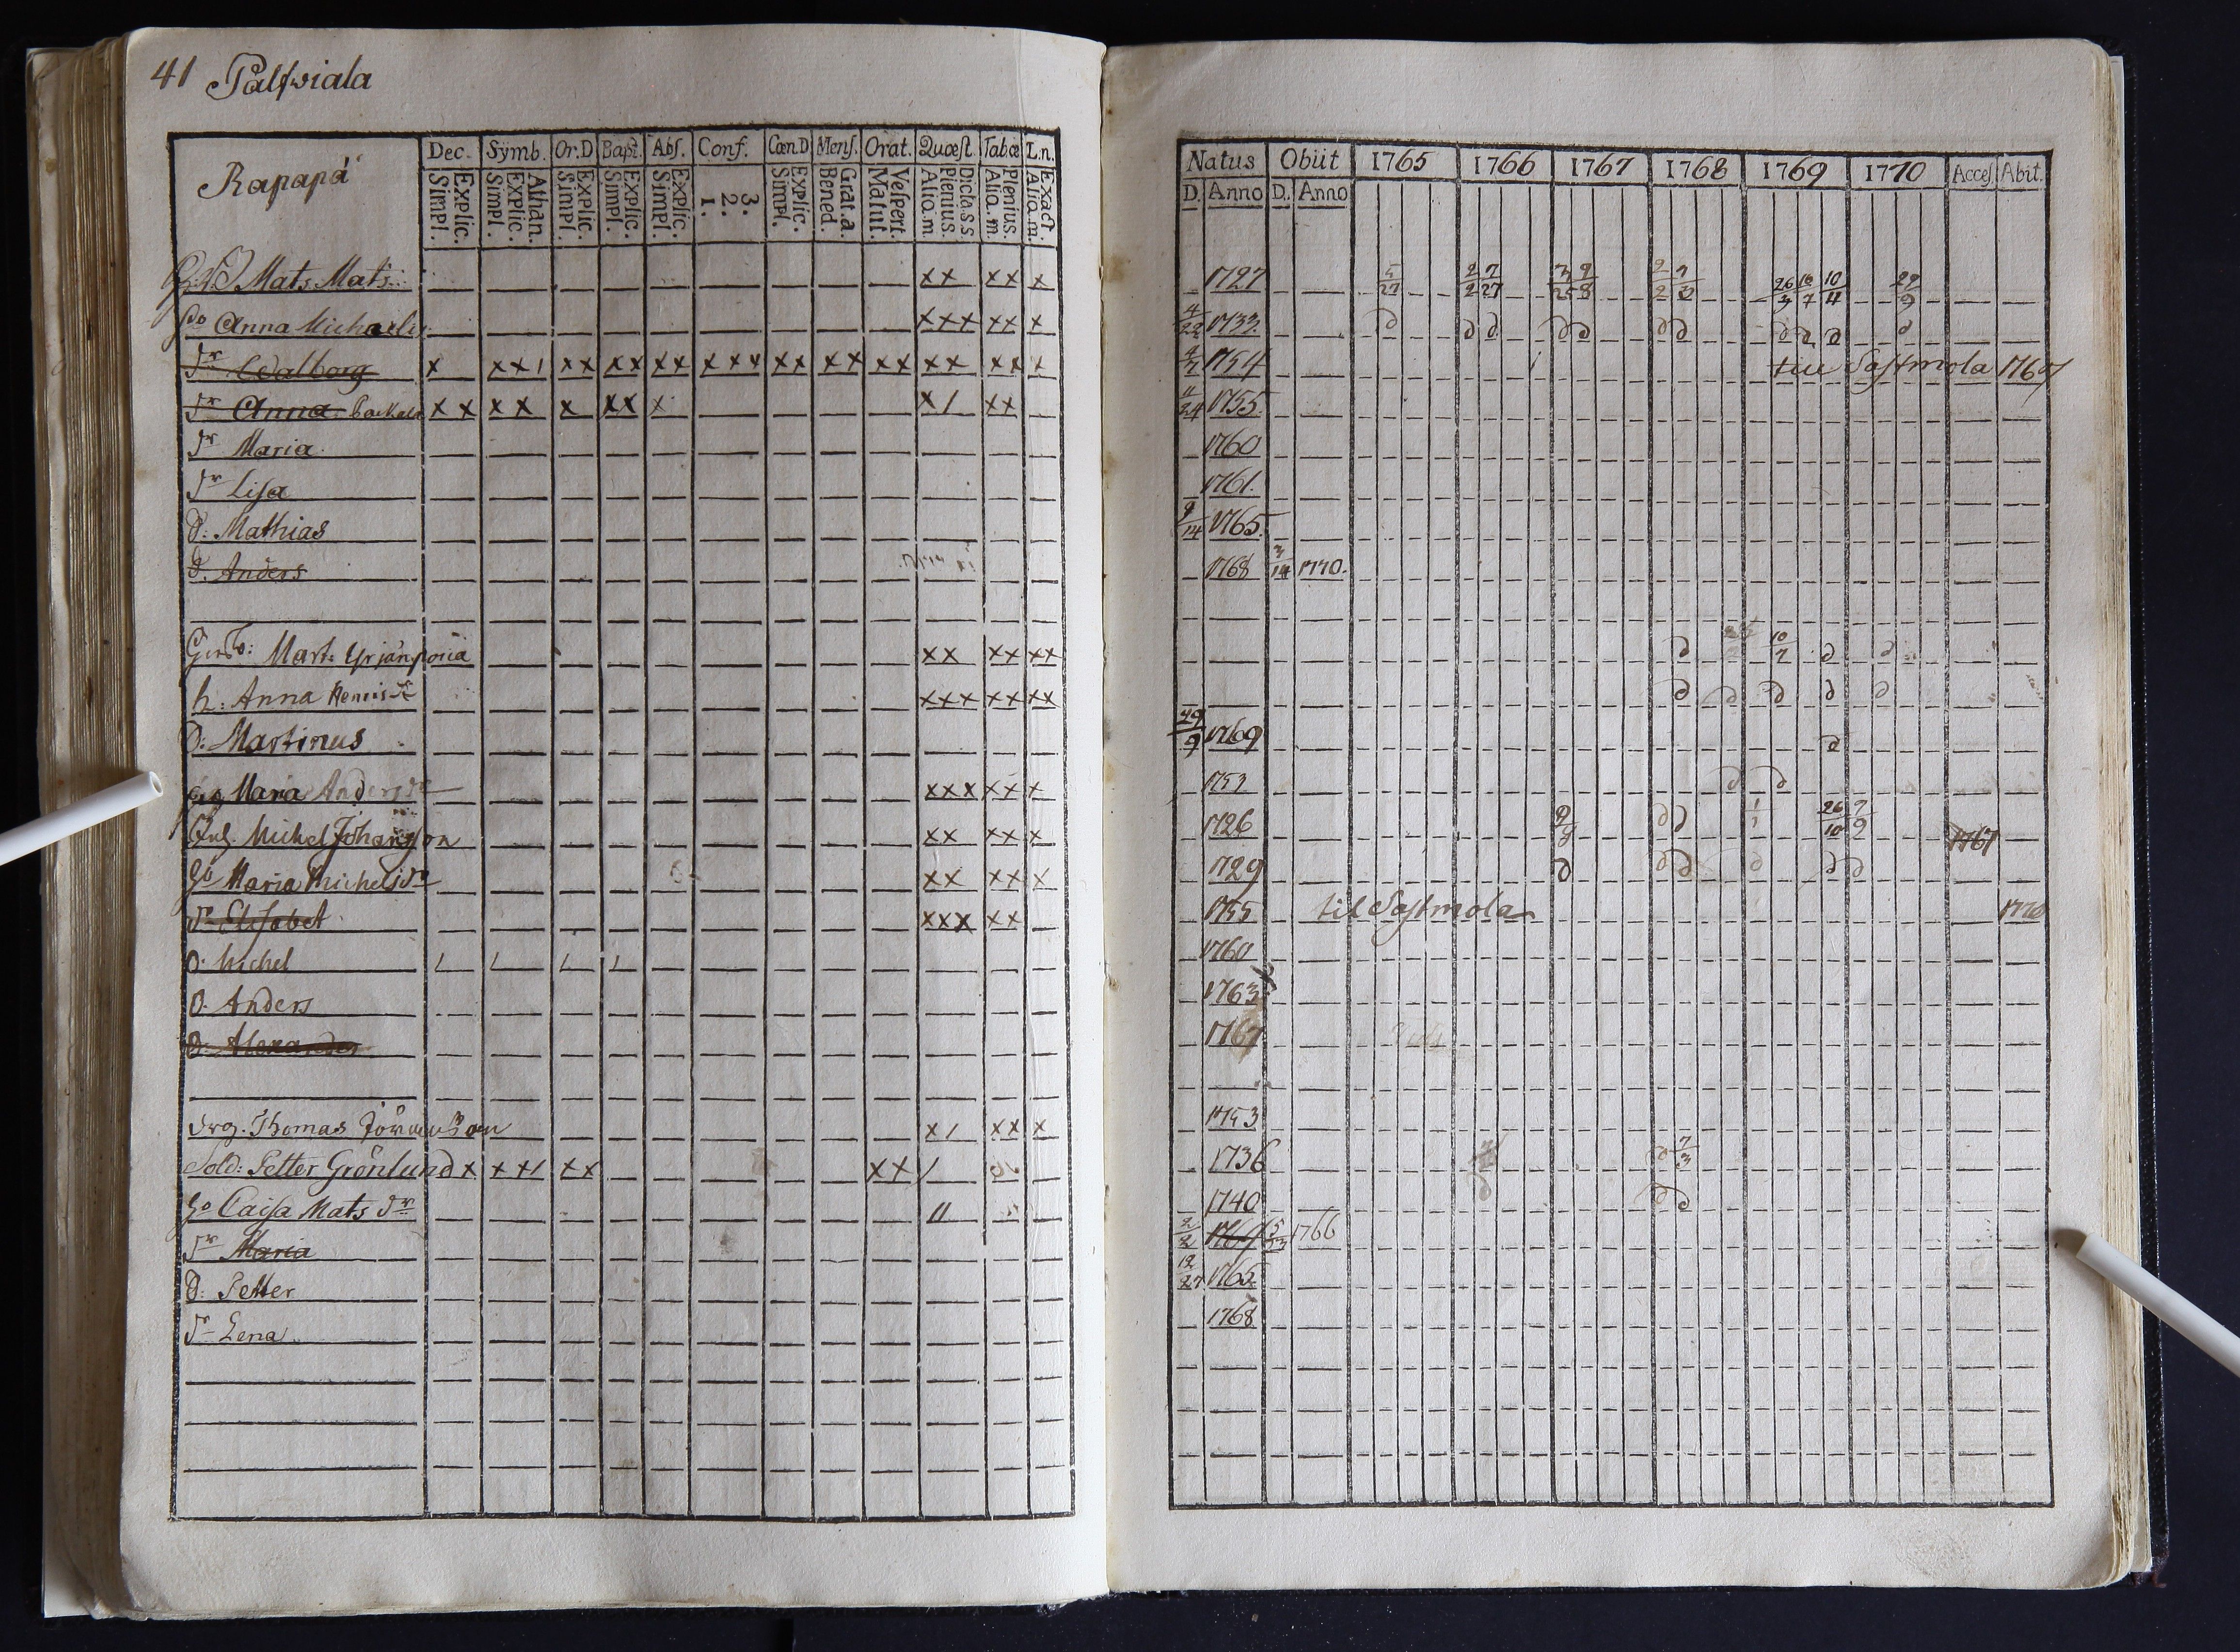 41 Pålswiala
Rapapå
Dec. Symb. Or.D Bapt. Abs. Conf. Cœn D Mens. Orat. Quæst. Tab.æ L.n.
Simpl. Explic. Simpl. Explic. Athan. Simpl. Explic. Simpl. Explic. Simpl. Explic. 1. 2. 3. Simpl. Explic. Bened. Grat.a. Matut. Vespert. Alio.m. Plenius. Dicta.s.s. Alio.m. Plenius. Alio.m. Exact.
Natus Obiit 1765 1766 1767 1768 1769 1770 Acces Abit.
D. Anno D. Anno
Mats Mats: xx xx x 1727 5/27 2/2 7/27 3/25 9/8 2/2 26/3 16/7 10/4 29/9
Anna Michaelis xxx xx x 4/22 1733.
dr Walborg x xx1 xx xx xx xxx xx xx xx xx xx x 1754 till Sastmola 1769
dr Anna xx xx x xx x x1 xx 11/24 1755.
dr Maria 1760
dr Lisa 1761.
d: Mathias 9/14 1765.
d. Anders 1768 3/14 1770.
Mart: Yrjänpoica xx xx xx 10/2
h: Anna Henrisdr xxx xx xx
d: Martinus 29/9 1769
Maria Andersdr xxx xx x 1753
Michel Johansson xx xx x 1726 1/1 26/10 7/9 1767
Maria Michelsdr xx xx x 1729
dr Elisabet xxx xx 1755 til Sastmola 1770
d. Michel 1760
d. Anders 1763
d: Alexander 1767
drg. Thomas x1 xx x 1753
Sold: Petter Grönlund x xx1 xx xx 1 1736 7/3
Caisa Mats dr 11 1740
dr Maria 2/2 1764 1766
d: Petter 12/27 1765
dr Lena 1768